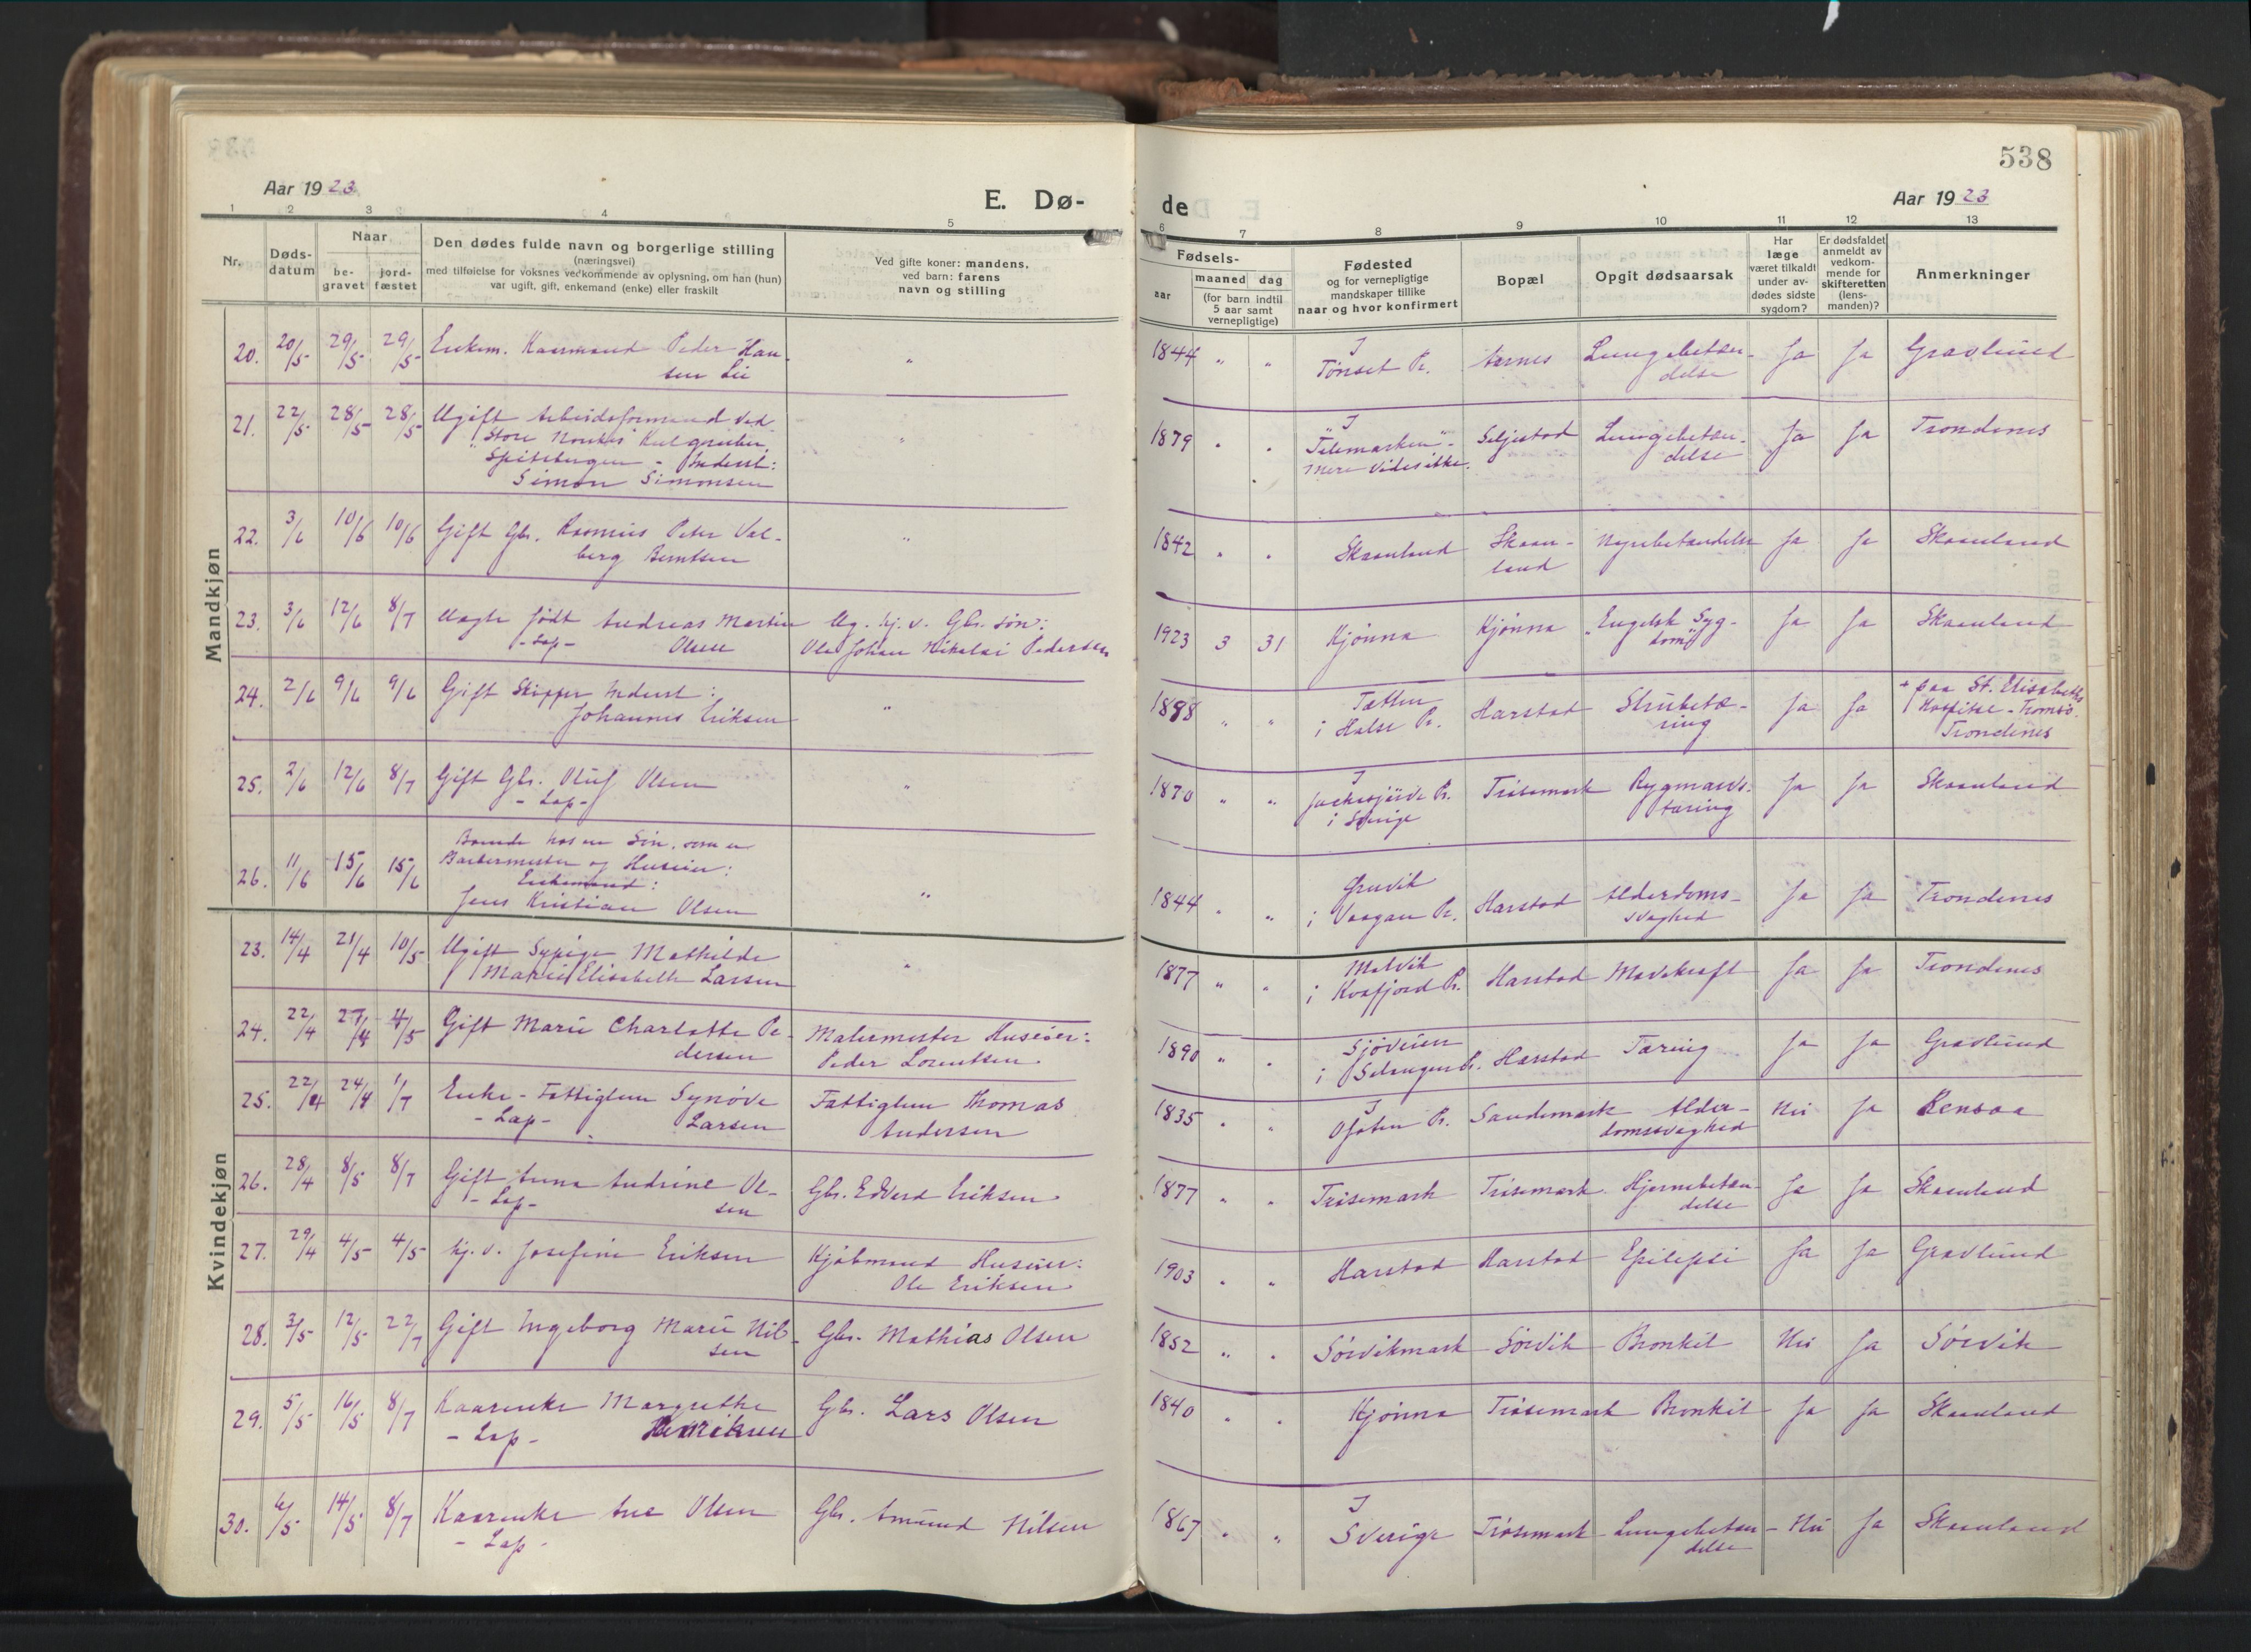 538
Aar 1923
E. Dø-
de
Aar 1923
1 2 3 4 5 6 7 8 9 10 11 12 13
Nr.
Døds-
datum
Naar
be-
gravet
jord-
fæstet
Den dødes fulde navn og borgerlige stilling
(næringsvei)
med tilføielse for voksnes vedkommende av oplysning, om han (hun)
var ugift, gift, enkemand (enke) eller fraskilt
Ved gifte koner: mandens,
ved barn: farens
navn og stilling
Fødsels-
aar
maaned dag
(for barn indtil
5 aar samt
vernepligtige)
Fødested
og for vernepligtige
mandskaper tillike
naar og hvor konfirmert
Bopæl
Opgit dødsaarsak
Har
læge
været tilkaldt
under av-
dødes sidste
sygdom?
Er dødsfaldet
anmeldt av
vedkom-
mende for
skifteretten
(lens-
manden)?
Anmerkninger
Mandkjøn
20. 20/5 29/5 29/5 Enkem. Kaarmand Peder Han-
sen Lii
"
1844 " "
I
Tønset Pr.
Aarnes
Lungebetæn-
delse
Ja Ja Gravlund
21. 22/5 28/5 28/5 Ugift Arbeidsformand ved
"Store Norskes" Kulgruber,
Spitsbergen - Inderst:
Simon Simonsen
"
1879 " "
I
"Telemarken" -
mere vides ikke.
Seljestad
Lungebetæn-
delse
Ja Ja Trondenes
22. 3/6 10/6 10/6 Gift Gbr. Rasmus Peter Val-
berg Berntsen
"
1842 " "
Skaanland
Skaan-
land
Nyrebetændelse
Ja Ja Skaanland
23. 3/6 12/6 8/7 Uægte født Andreas Martin
- Lap - Olsen
Ug. hj.v. Gbr. søn:
Ole Johan Nikolai Pedersen
1923 3 31
Kjønna
Kjønna
"Engelsk Syg-
dom"
Ja Ja Skaanland
24. 2/6 9/6 9/6 Gift Skipper Inderst:
Johannes Eriksen
"
1888 " "
Tetten
i Halse Pr.
Harstad
Strubetæ-
ring
Ja Ja
+ paa St. Elisabeths
Hospital - Tromsø.
Trondenes
25. 2/6 12/6 8/7 Gift Gbr. Oluf Olsen
- Lap -
"
1870 " "
I
Juckasjärvi Pr.
i Sverige
Trøsemark
Rygmarvs-
tæring
Ja Ja Skaanland
26. 11/6 15/6 15/6
Boende hos en Søn, som er
Barbermester og Huseier:
Enkemand:
Jens Kristian Olsen
"
1844 " "
Gruvik
i Vaagan Pr.
Harstad
Alderdoms-
svaghed
Ja Ja Trondenes
Kvindekjøn
23. 14/4 21/4 10/5 Ugift Sypige Mathilde
Marie Elisabeth Larsen
"
1877 " "
Melvik
i Kvæfjord Pr.
Harstad Mavekræft Ja Ja Trondenes
24. 22/4 27/4 4/5 Gift Marie Charlotte Pe-
dersen
Malermester Huseier:
Peder Lorentsen
1890 " "
Sjøveien
i Salangen Pr.
Harstad Tæring Ja Ja Gravlund
25. 22/4 24/4 1/7 Enke - Fattiglem Synøve
- Lap - Larsen
Fattiglem Thomas
Andersen
1835 " "
I
Ofoten Pr.
Sandemark
Alder-
domssvaghed
Nei Ja Rensaa
26. 28/4 8/5 8/7 Gift Anna Andrine Ol-
- Lap - sen
Gbr. Edvard Eriksen
1877 " "
Trøsemark
Trøsemark
Hjernebetæn-
delse
Ja Ja Skaanland
27. 29/4 4/5 4/5 hj.v. Josefine Eriksen
Kjøbmand Huseier:
Ole Eriksen
1903 " "
Harstad Harstad Epilepsi Ja Ja Gravlund
28. 3/5 12/5 22/7 Gift Ingeborg Marie Nil-
sen
Gbr. Mathias Olsen
1852 " "
Sørvikmark Sørvik Bronkit Nei Ja Sørvik
29. 5/5 16/5 8/7 Kaarenke Margrethe
- Lap - Henriksen
Gbr. Lars Olsen
1840 " "
Kjønna Trøsemark Bronkit Ja Ja Skaanland
30. 6/5 14/5 8/7 Kaarenke Ane Olsen
- Lap -
Gbr. Amund Nilsen
1867 " "
I
Sverige
Trøsemark
Lungebetæn-
delse
Nei Ja Skaanland